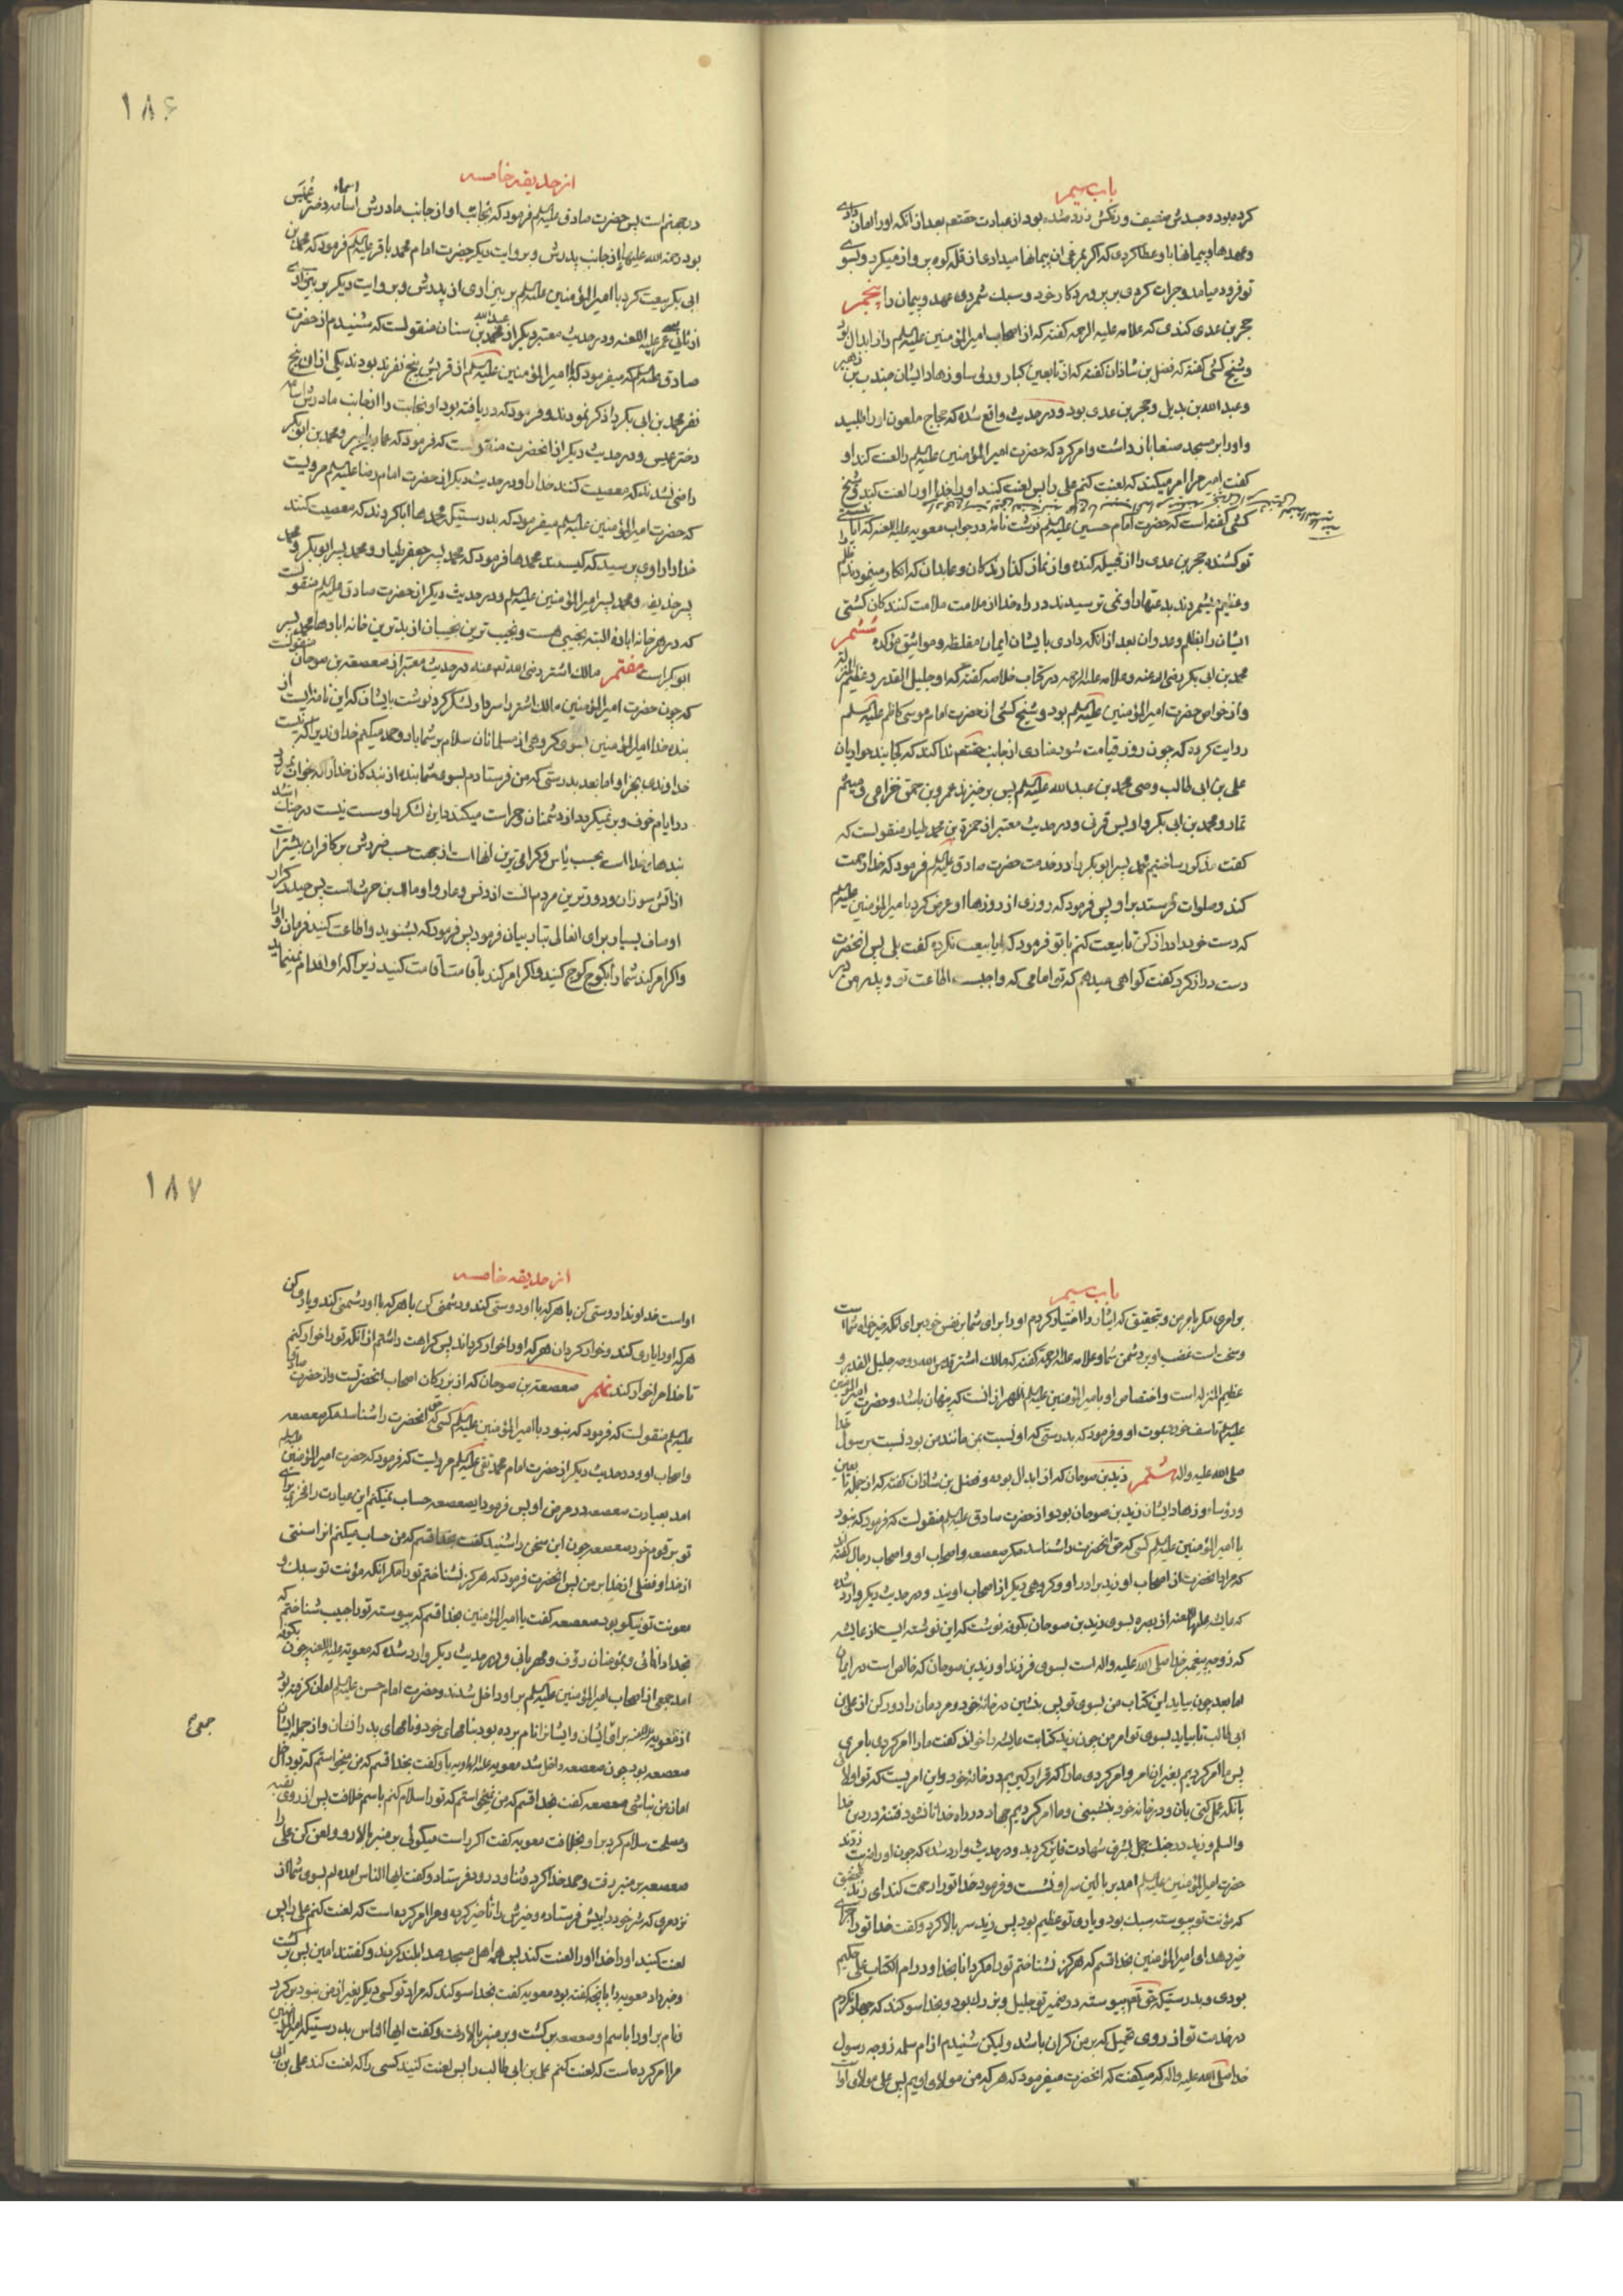 باب سیم
کرده بود و جسدش ضعیف و رنگش زرد شده بود از عبادت حقتعم بعد از آنکه او را امان دادی
و عهدها و پیمانها باو عطا کردی که اگر بمرغی آن پیمانها میدادی از قله کوه پرواز میکرد و بسوی
تو فرود میامد و جرات کردی بر پروردکار خود و سبک شمردی عهد و پیمان را پنجم
حجر بن عدی کندی که علامه علیه الرحمه کفته که از اصحاب امیرالمؤمنین علیه السلم و از ابدال بود
و شیخ کشی کفته که فضل بن شاذان کفته که از تابعین کبار و رؤسا و زهاد ایشان جندب بن زهیر
و عبدالله بن بدیل و حجر بن عدی بود و در حدیث واقع شده که حجاج ملعون او را طلبید
و او را بر مسجد صنعا باز داشت و امر کرد که حضرت امیرالمؤمنین علیه السلم را لعنت کند او
کفت امیر مرا امر میکند که لعنت کنم علی را پس لعنت کنید او را خدا او را لعنت کند و شیخ
کشی کفته است که حضرت امام حسین علیه السلم نوشت نامه در جواب معویه علیه اللعنه که ایا نیستی
تو کشنده حجر بن عدی را از قبیله کنده و از نماز کذارندکان و عابدان که انکار مینمودند ظلم را
و عظیم میشمردند بدعتها را و نمی ترسیدند در راه خدا از ملامت ملامت کنندکان کشتی
ایشان را بظلم و عدوان بعد از آنکه دادی بایشان ایمان مغلظه و مواثیق مؤکده ششم
محمد بن ابی بکر رضی الله عنه و علامه علیه الرحمه در کتاب خلاصه کفته که او جلیل القدر و عظیم المنزله
و از خواص حضرت امیرالمؤمنین علیه السلم بود و شیخ کشی از حضرت امام موسی کاظم علیه السلم
روایت کرده که چون روز قیامت شود منادی از جانب حقتعم ندا کند که کجایند حواریان
علی بن ابی طالب وصی محمد بن عبدالله علیه السلم پس بر خیزند عمرو بن حمق خزاعی و میثم
تمار و محمد بن ابی بکر و اویس قرنی و در حدیث معتبر از حمزة بن محمد طیار منقولست که
کفت مذکور ساختیم محمد پسر ابوبکر را در خدمت حضرت صادق علیه السلم فرمود که خدا رحمت
کند و صلوات فرستد بر او پس فرمود که روزی از روزها او عرض کرد بامیرالمؤمنین علیه السلم
که دست خود را دراز کن تا بیعت کنم با تو فرمود که ایا بیعت نکرده کفت بلی پس انحضرت
دست دراز کرد کفت کواهی میدهم که تو امامی که واجبست اطاعت تو و پدر من در
۱۸۶
از حدیقه خامسه
در جهنم است پس حضرت صادق علیه السلم فرمود که نجابت او از جانب مادرش اسماء دختر عمیس
بود رحمه الله علیها نه از جانب پدرش و بروایت دیکر حضرت امام محمد باقر علیه السلم فرمود که محمد بن
ابی بکر بیعت کرد با امیرالمؤمنین علیه السلم بر بیزاری از پدرش و بروایت دیکر بر بیزاری
از ثانی یعنی عمر علیه اللعنه و در حدیث معتبر دیکر از عبدالله بن سنان منقولست که شنیدم از حضرت
صادق علیه السلم که میفرمود که با امیرالمؤمنین علیه السلم از قریش پنج نفرند بودند یکی از ان پنج
نفر محمد بن ابی بکر را ذکر نمودند و فرمود که دریافته بود او نجابت را از جانب مادرش اسماء
دختر عمیس و در حدیث دیکر از انحضرت منقولست که فرمود که عمار یاسر و محمد بن ابوبکر
راضی نشدند که معصیت کنند خدا را و در حدیث دیکر از حضرت امام رضا علیه السلم مرویست
که حضرت امیرالمؤمنین علیه السلم میفرمود که بدرستیکه محمدها ابا کردند که معصیت کنند
خدا را راوی پرسید که کیستند محمدها فرمود که محمد پسر جعفر طیار و محمد پسر ابوبکر و محمد
پسر حذیفه و محمد پسر امیرالمؤمنین علیه السلم و در حدیث دیکر از حضرت صادق علیه السلم منقولست
که در هر خانه اباده البته نجیبی هست و نجیب ترین نجیبان از بدترین خانه ابادها محمد پسر
ابوبکر است هفتم مالک اشتر رضی الله تعم عنه در حدیث معتبر از صعصعه بن صوحان منقولست
که چون حضرت امیرالمؤمنین مالک اشتر را سردار لشکر کرد نوشت بایشان که این نامه ایست از
بنده خدا امیرالمؤمنین بسوی کروهی از مسلمانان سلام بر شما باد و حمد میکنم خداوندیرا که نیست
خداوندی بجز او اما بعد بدرستی که من فرستادم بسوی شما بنده از بندکان خدا را که بخواب نمیرود
در ایام خوف و بر نمیکردد از دشمنان و حراست میکند دایره لشکر را و سست نیست در جنک اشد
بندهای خدا است بحسب یاس و کرامی ترین آنها است از جهت حسب ضررش بر کافران بیشتر است
از آتش سوزان و دورترین مردم است از دنس و عار و او مالک بن حرث است پس حیدر کرار
اوصاف بسیار برای انعالی تبار بیان فرمود پس فرمود که بشنوید و اطاعت کنید فرمان او را
و اکر امر کند شما را بکوچ کوچ کنید و اکر امر کند باقامت اقامت کنید زیرا که او اقدام نمینماید
باب سیم
بر امری مکر بامر من و بتحقیق که ایثار و اختیار کردم او را برای شما بر نفس خود برای انکه خیرخواه شما است
و سخت است غضب او بر دشمن شما و علامه علیه الرحمه کفته که مالک اشتر قدس الله روحه جلیل القدر و
عظیم المنزله است و اختصاص او بامیرالمؤمنین علیه السلم اظهر از انست که پنهان باشد و حضرت امیرالمؤمنین
علیه السلم تاسف خورد بموت او و فرمود که بدرستی که او نسبت بمن مانند من بود نسبت برسول خدا
صلی الله علیه واله هشتم زید بن صوحان که از ابدال بوده و فضل بن شاذان کفته که از جمله تابعین
و رؤسا و زهاد ایشان زید بن صوحان بود و از حضرت صادق علیه السلم منقولست که فرمود که نبود
با امیرالمؤمنین علیه السلم کسی که حق انحضرت را شناسد مکر صعصعه و اصحاب او و اصحاب رجال کفته اند
که مراد انحضرت از اصحاب او زید برادر او و کروهی دیکر از اصحاب اویند و در حدیث دیکر وارد شده
که عایشه علیها اللعنه از بصره بسوی زید بن صوحان بکوفه نوشت که این نوشته ایست از عایشه
که زوجه پیغمبر خدا صلی الله علیه واله است بسوی فرزند او زید بن صوحان که خالص است در ایمان
اما بعد چون بیاید این کتاب من بسوی تو پس بنشین در خانه خود و مردمان را دور کن از علی بن
ابی طالب تا بیاید بسوی تو امر من چون زید کتابت عایشه را خواند کفت ما را امر کردی بامری
پس ما امر کردیم بغیر ان امر و امر کردی ما را که قرار کیریم در خانه خود و این امریست که تو اولائی
بانکه عمل کنی بان و در خانه خود بنشینی و ما امر کردیم بجهاد در راه خدا تا نشود فتنه در دین خدا
والسلم و زید در جنک جمل بشرف شهادت فایز کردید و در حدیث وارد شده که چون او را ضربت زدند
حضرت امیرالمؤمنین علیه السلم امد بر بالین سر او نشست و فرمود خدا تو را رحمت کند ای زید بتحقیق
که مؤنت تو پیوسته سبک بود و یاری تو عظیم بود پس زید سر بالا کرد و کفت خدا تو را جزای
خیر دهد ای امیرالمؤمنین بخدا قسم که هرکز نشناختم تو را مکر دانا بخدا و در ام الکتاب علی حکیم
بودی و بدرستیکه حق تعم پیوسته در ضمیر تو جلیل و بزرک بود و بخدا سوکند که جهاد نکردم
در خدمت تو از روی تحمیل که بر من کران باشد ولیکن شنیدم از ام سلمه زوجه رسول
خدا صلی الله علیه واله که میکفت که انحضرت میفرمود که هر که من مولای اویم پس علی مولای اوست
۱۸۷
از حدیقه خامسه
او است خداوندا دوستی کن با هر که با او دوستی کند و دشمنی کن با هر که با او دشمنی کند و یاری کن
هر که او را یاری کند و خوار کردان هر که او را خوار کرداند پس کراهت داشتم از انکه تو را خوار کنم
تا خدا مرا خوار کند نهم صعصعه بن صوحان که از بزرکان اصحاب انحضرتست و از حضرت صادق
علیه السلم منقولست که فرمود که نبود با امیرالمؤمنین علیه السلم کسی که حق انحضرت را شناسد مکر صعصعه
و اصحاب او و در حدیث دیکر از حضرت امام محمد تقی علیه السلم مرویست که فرمود که حضرت امیرالمؤمنین علیه السلم
امد بعیادت صعصعه در مرض او پس فرمود ایصعصعه حساب نمیکنم این عیادت را فخری برای
تو بر قوم خود صعصعه چون این سخن را شنید کفت بخدا قسم که من حساب میکنم انرا منتی
از خدا و فضلی از خدا بر من پس انحضرت فرمود که هرکز نشناختم تو را مکر انکه مؤنت تو سبک و
معونت تو نیکو بود صعصعه کفت یا امیرالمؤمنین بخدا قسم که پیوسته تو را چنین شناختم که
بخدا دانائی و بمؤمنان رؤف و مهربانی و در حدیث دیکر وارد شده که معویه علیه اللعنه چون بکوفه
امد جمعی از اصحاب امیرالمؤمنین علیه السلم بر او داخل شدند و حضرت امام حسن علیه السلم امان کرفته بود
از معویه برای ایشان و ایشانرا نام برده بود بنامهای خود و نامهای پدرانشان و از جمله ایشان
صعصعه بود چون صعصعه داخل شد معویه علیه الهاویه باو کفت بخدا قسم که من میخواستم که تو داخل
امان من نباشی صعصعه کفت بخدا قسم که من نمیخواستم که تو را سلام کنم باسم خلافت پس از روی تقیه
و مصلحت سلام کرد بر او بخلافت معویه کفت اکر راست میکوئی بر منبر بالا رو و لعن کن علی را
صعصعه بر منبر رفت و حمد خدا کرد و ثنا و درود فرستاد و کفت ایها الناس امده ام بسوی شما از
نزد مردی که شر خود را پیش فرستاده و خیرش را تاخیر کرده و مرا امر کرده است که لعنت کنم علی را پس
لعنت کنید او را خدا او را لعنت کند پس همه اهل مسجد صدا بلند کردند و کفتند امین پس بر کشت
و خبر داد معویه را بانچه کفته بود معویه کفت بخدا سوکند که مراد تو کسی دیکر بغیر از من نبود بر کرد
و نام بر او را باسم او صعصعه بر کشت و بر منبر بالا رفت و کفت ایها الناس بدرستیکه امیرالمؤمنین
مرا امر کرده است که لعنت کنم علی بن ابی طالب را پس لعنت کنید کسی را که لعنت کند علی بن ابی
جمعی